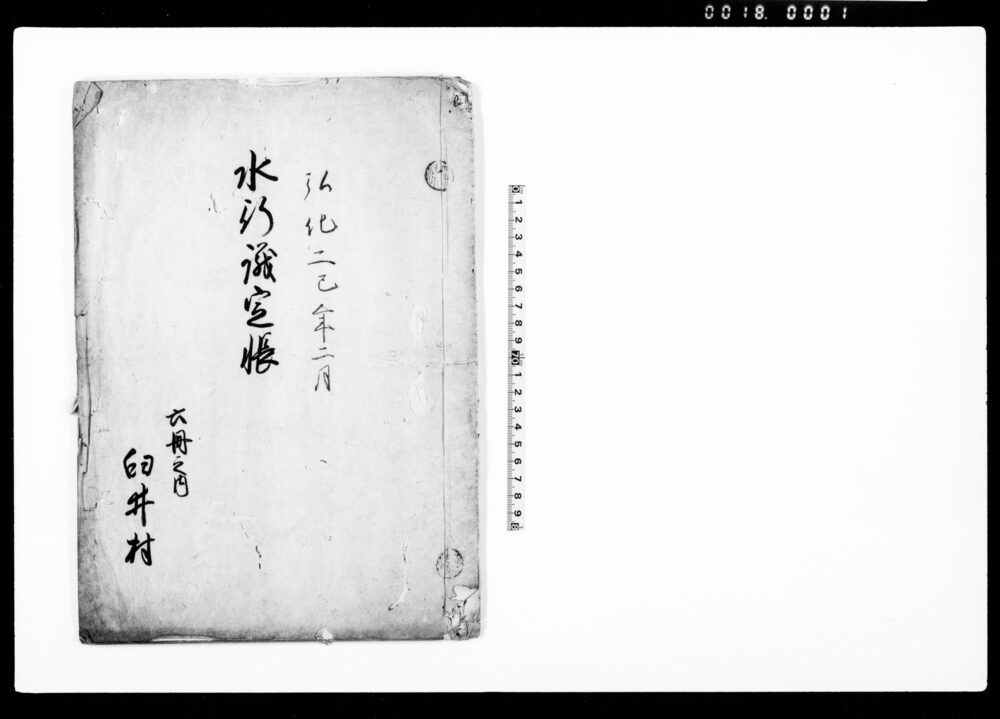 0018. 0001
弘化二巳年二月
水行議定帳
六冊之内
臼井村
0 1 2 3 4 5 6 7 8 9 10 1 2 3 4 5 6 7 8 9